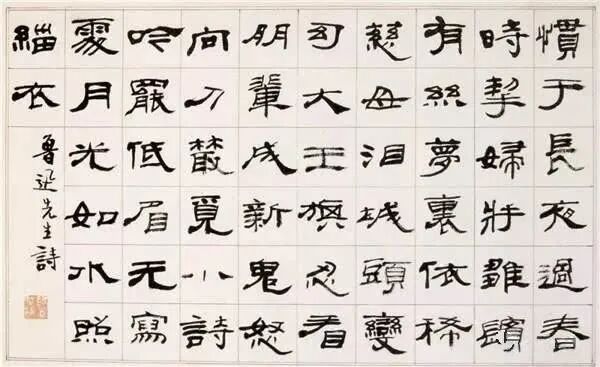 慣于長夜過春
時挈婦將雛鬢
有絲夢裏依稀
慈母泪城頭變
幻大王旗忍看
朋輩成新鬼怒
向刀叢覓小詩
吟罷低眉无寫
處月光如水照
緇衣
魯迅先生詩